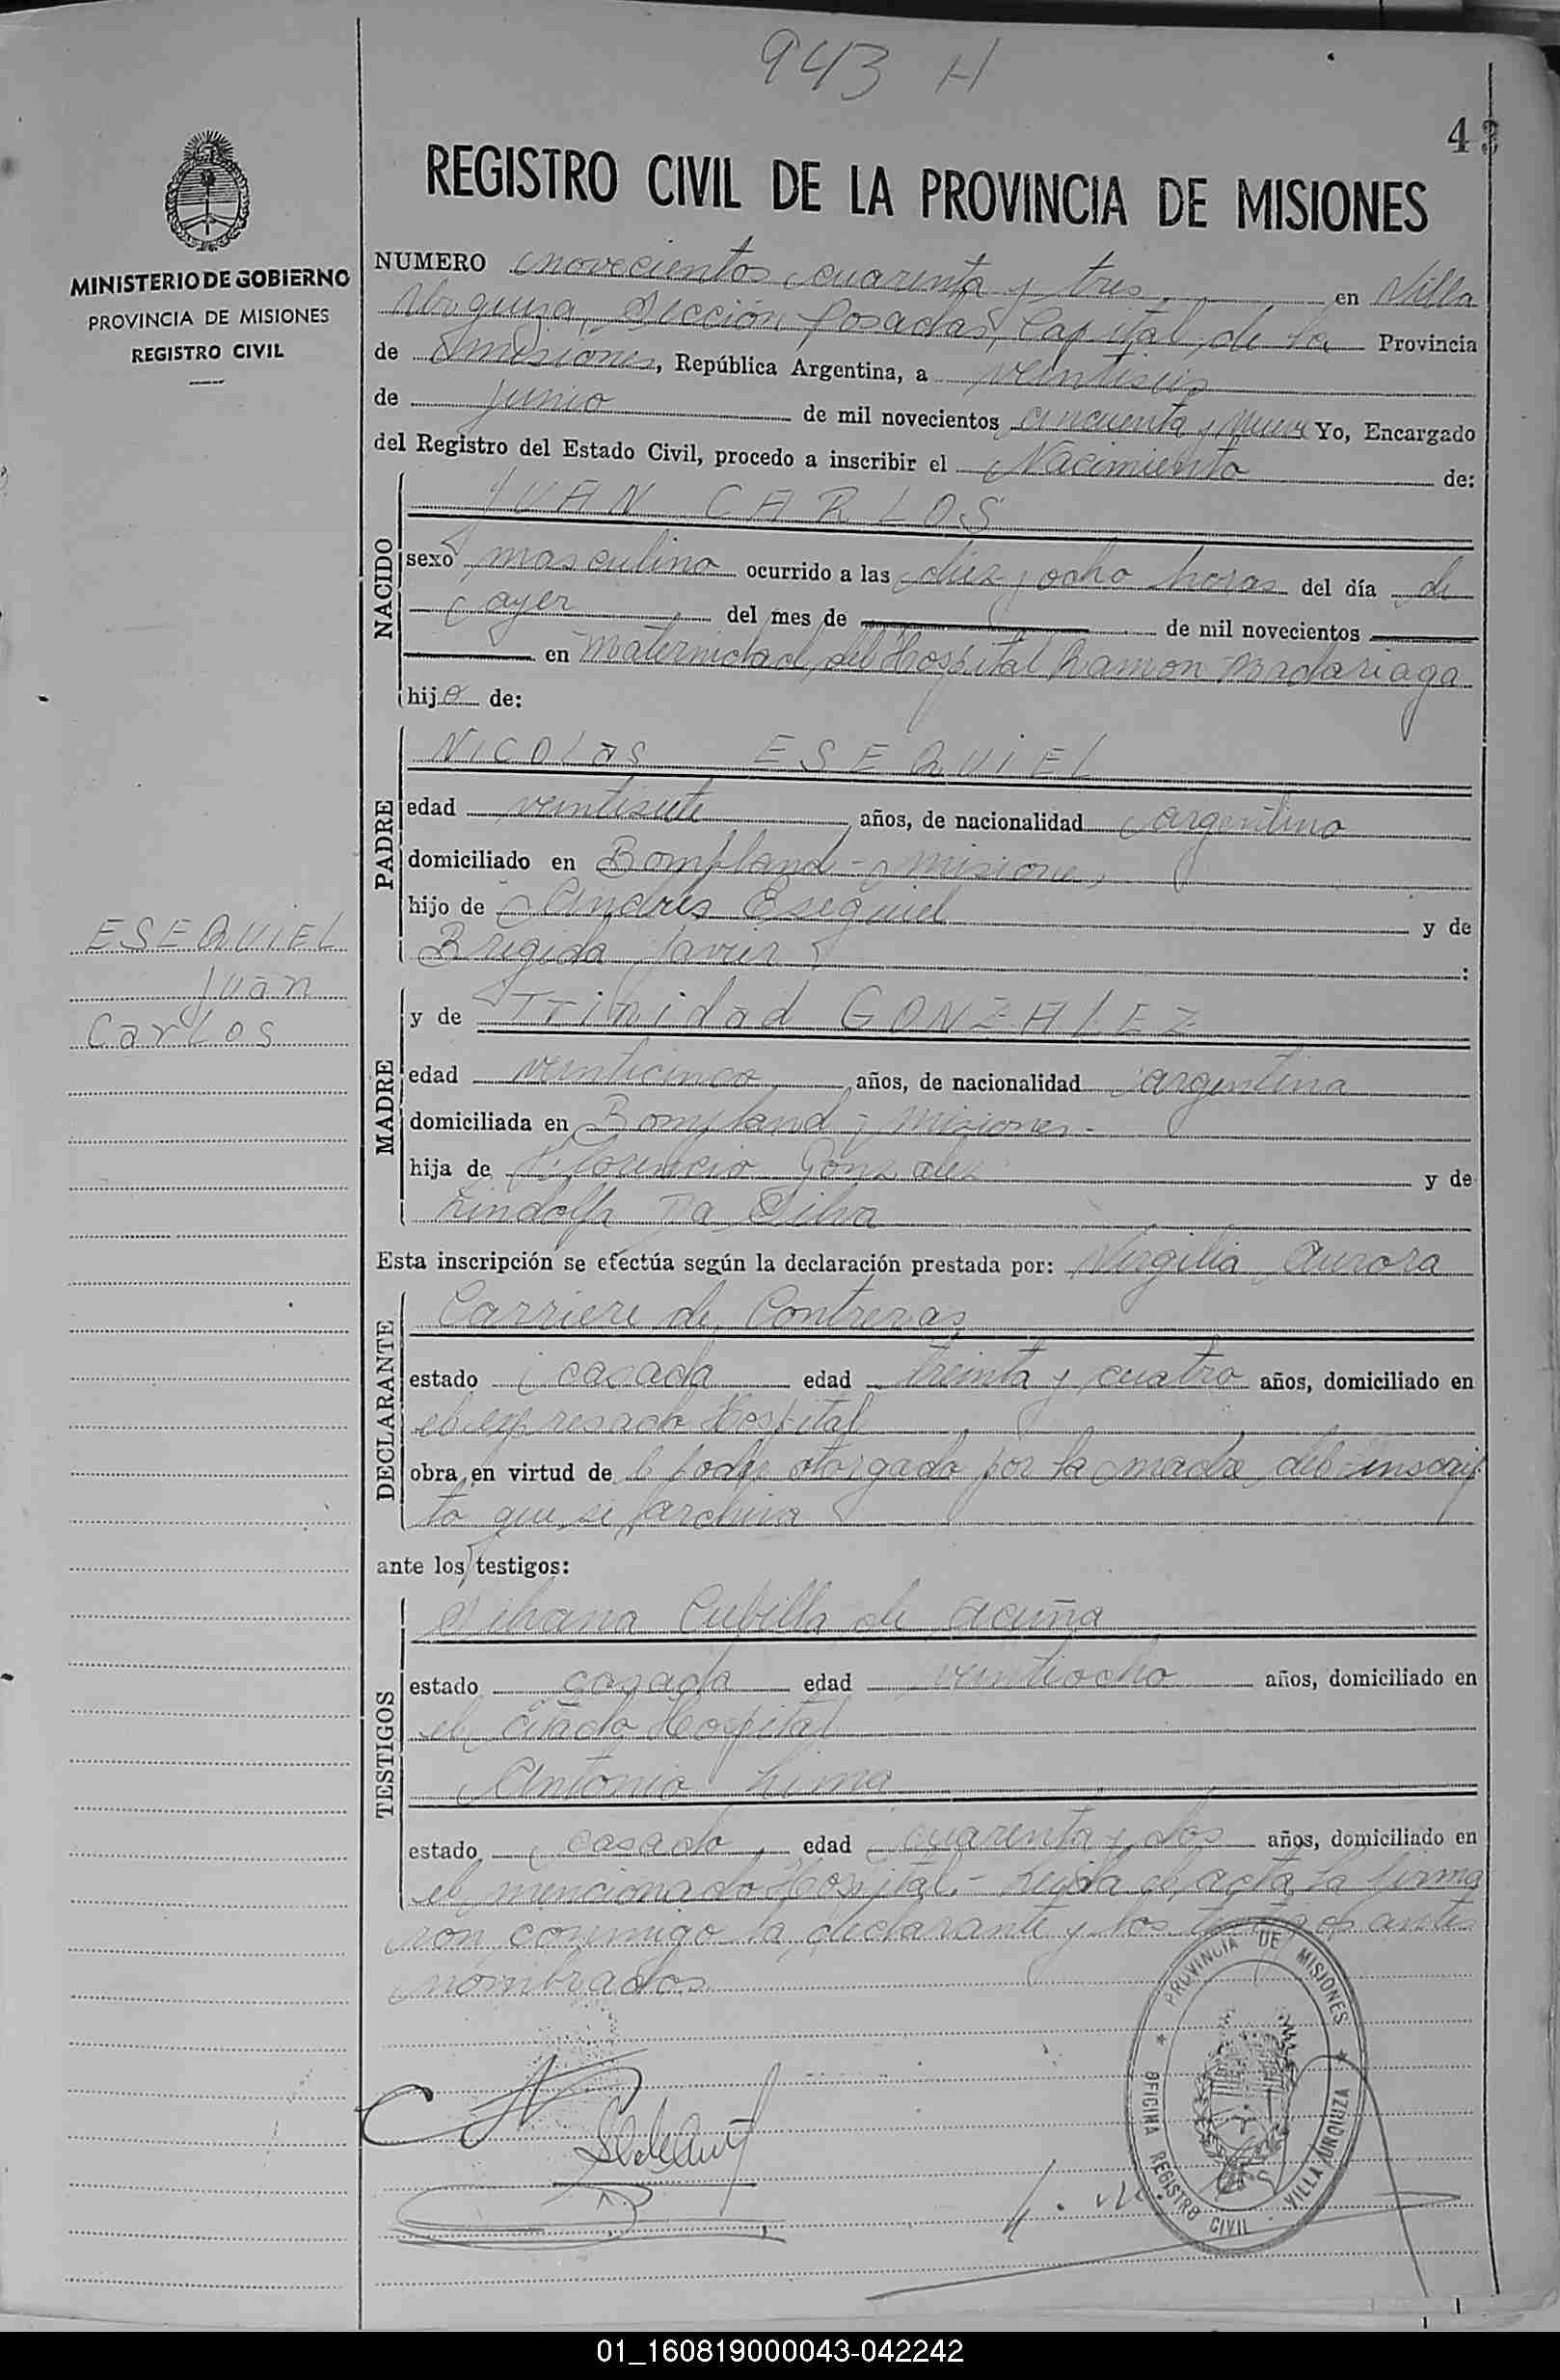 943 H
43
MINISTERIO DE GOBIERNO
PROVINCIA DE MISIONES
REGISTRO CIVIL
ESEQUIEL
Juan
Carlos
REGISTRO CIVIL DE LA PROVINCIA DE MISIONES
NUMERO novecientos cuarenta y tres, en Villa
Urquiza, Sección Posadas, Capital de la Provincia
de Misiones, República Argentina, a veintiseis
de junio de mil novecientos cincuenta y nueve Yo, Encargado
del Registro del Estado Civil, procedo a inscribir el Nacimiento de:
NACIDO
JUAN CARLOS
sexo masculino ocurrido a las diez y ocho horas del día de
ayer del mes de de mil novecientos
en Maternidad del Hospital Ramon Madariaga
hijo de:
PADRE
NICOLAS ESEQUIEL
edad veintisiete años, de nacionalidad argentino
domiciliado en Bompland - Misiones
hijo de Andrés Esequiel y de
Brigida Javier :
MADRE
y de Trinidad GONZALEZ
edad veinticinco años, de nacionalidad argentina
domiciliada en Bompland - Misiones -
hija de Florencio Gonzalez y de
Lindolfa Da Silva
Esta inscripción se efectúa según la declaración prestada por: Virgilia Aurora
DECLARANTE
Carriere de Contreras
estado casada edad treinta y cuatro años, domiciliado en
el expresado Hospital
obra en virtud de l poder otorgado por la madre del inscrip
to que se archiva
ante los testigos:
TESTIGOS
Cubilla de Acuña
estado casada edad veintiocho años, domiciliado en
el citado Hospital
Antonio Lima
estado casado edad cuarenta y dos años, domiciliado en
el mencionado Hospital.- Leida el acta la firma
ron conmigo la declarante y los testigos ante
nombrados.
PROVINCIA DE MISIONES
OFICINA REGISTRO CIVIL - VILLA URQUIZA
01_160819000043-042242